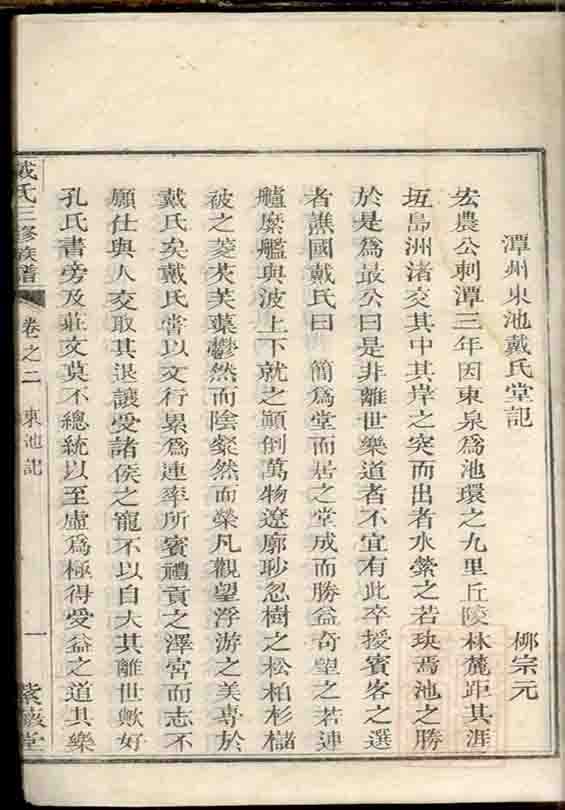 潭州東池戴氏堂記
柳宗元
宏農公刺潭三年因東泉為池環之九里丘陵林麓距其涯
坻島洲渚交其中其岸之突而出者水縈之若玦焉池之勝
於是為最公曰是非離世樂道者不宜有此卒授賓客之選
者譙國戴氏曰 簡為堂而居之堂成而勝益奇望之若連
艫縻艦與波上下就之顚倒萬物遼廓眇忽樹之松柏杉櫧
被之菱芡芙蕖鬱然而陰粲然而榮凡觀望浮游之美專於
戴氏矣戴氏嘗以文行累為連率所賓禮貢之澤宮而志不
願仕與人交取其退讓受諸侯之寵不以自大其離世歟好
孔氏書旁及莊文莫不總統以至虛為極得受益之道其樂
戴氏三修族譜
卷之二
東池記
一
紫巖堂